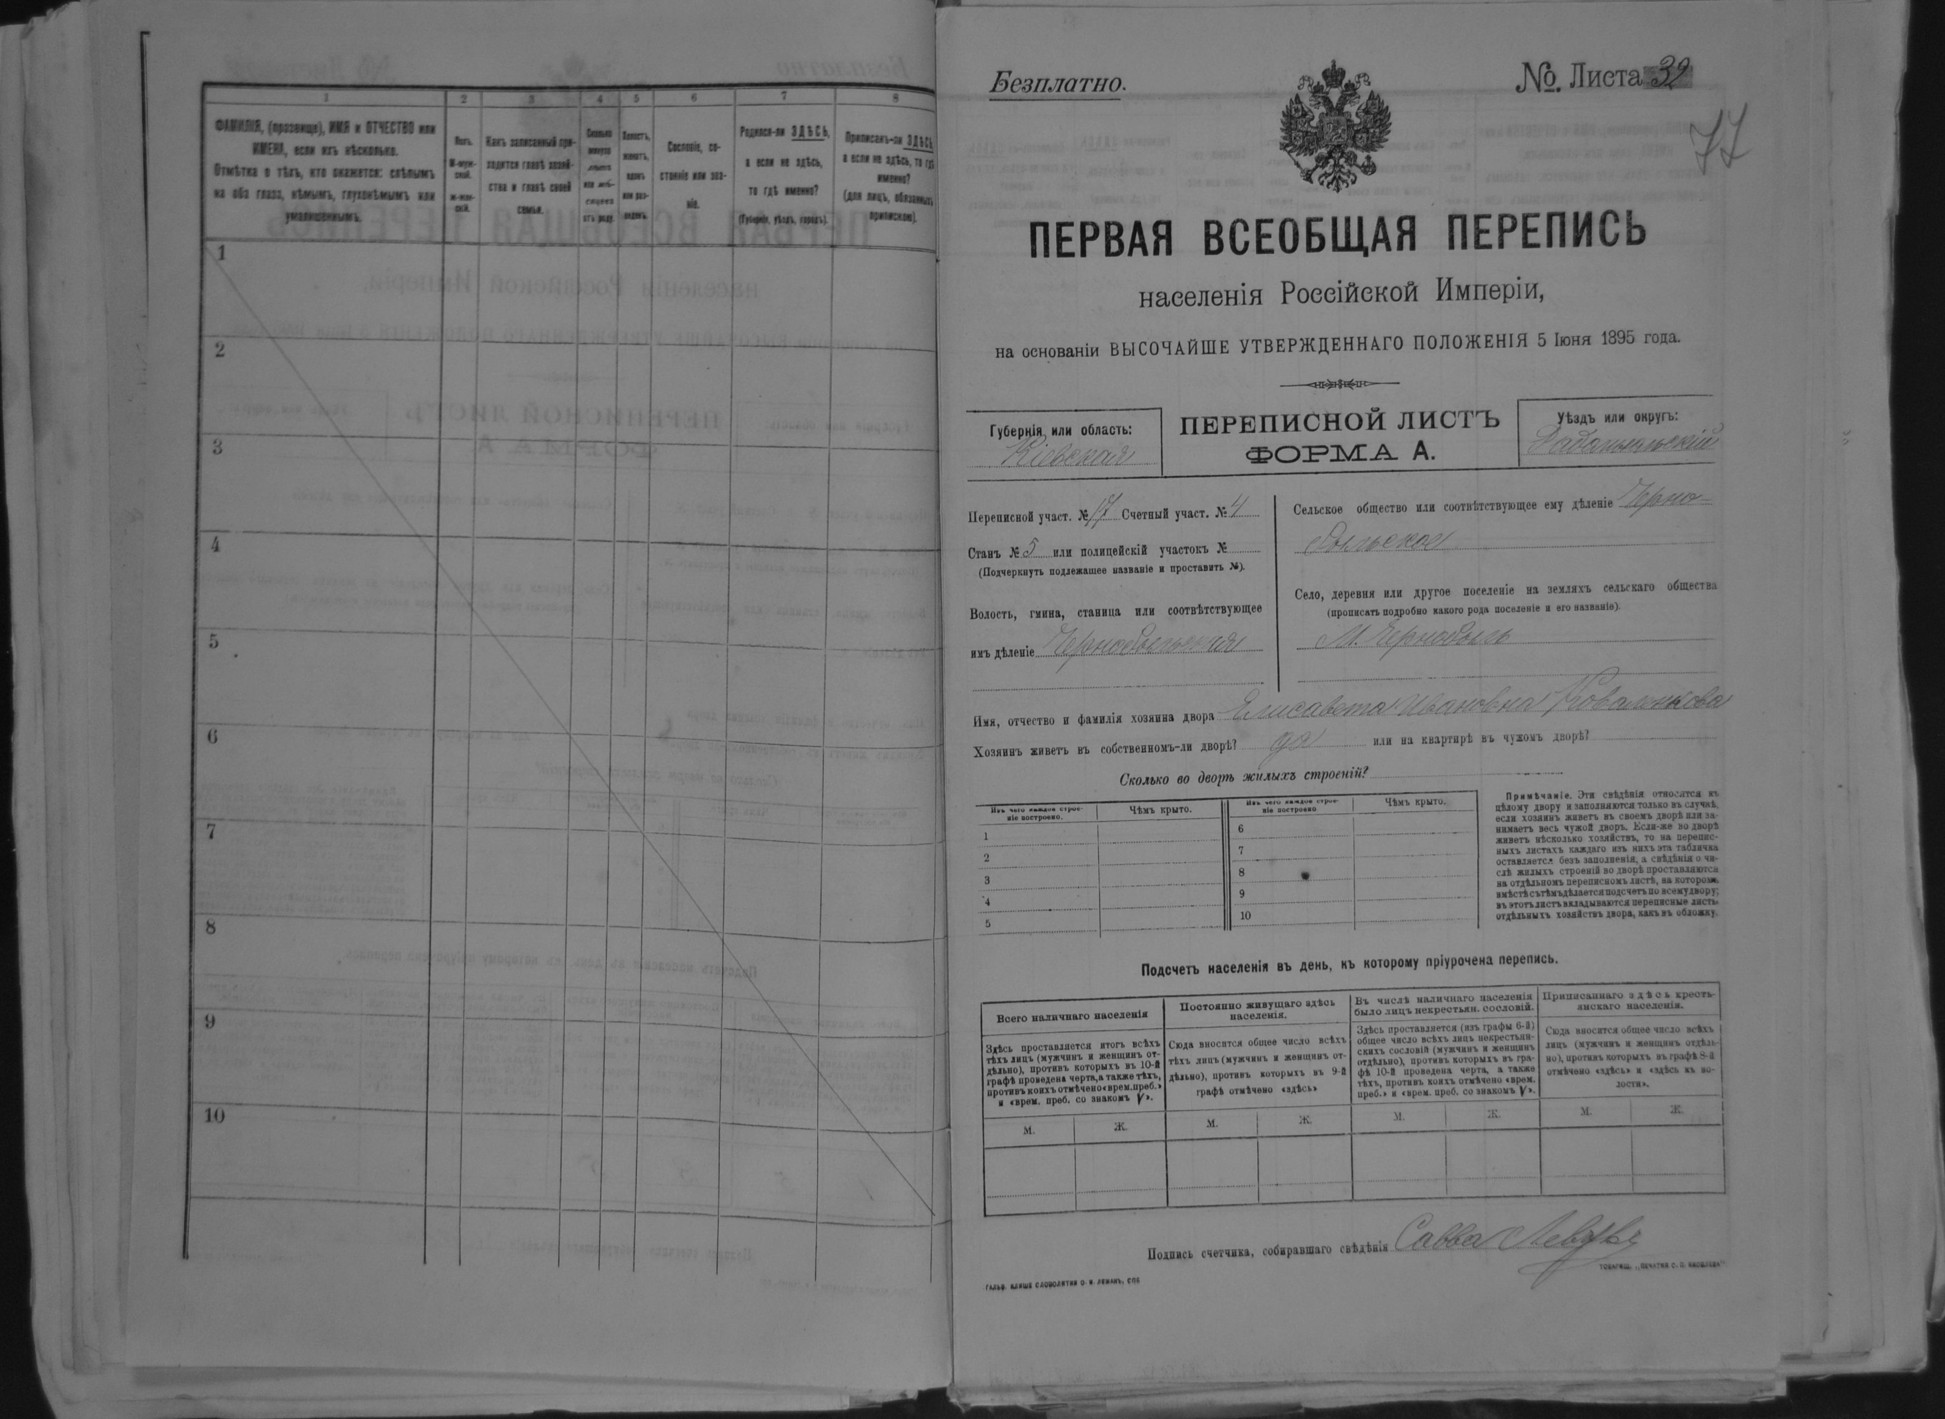 1 2 3 4 5 6 7 8
ФАМИЛІЯ, (прозвище), ИМЯ и ОТЧЕСТВО или
ИМЕНА, если ихъ нѣсколько.
Отмѣтка о тѣхъ, кто окажется: слѣпымъ
на оба глаза, нѣмымъ, глухонѣмымъ или
умалишеннымъ.
Полъ.
М-муж-
ской.
ж-жен-
скій.
Какъ записанный при-
ходится главѣ хозяй-
ства и главѣ своей
семьи.
Сколько
минуло
лѣтъ
или мѣ-
сяцевъ
отъ роду.
Холостъ,
женатъ,
вдовъ
или раз-
веденъ.
Сословіе, со-
стояніе или зва-
ніе.
Родился-ли ЗДѢСЬ,
а если не здѣсь,
то гдѣ именно?
(Губернія, уѣздъ, городъ).
Приписанъ-ли ЗДѢСЬ,
а если не здѣсь, то гдѣ
именно?
(для лицъ, обязанныхъ
припискою).
1
2
3
4
5
6
7
8
9
10
Безплатно.
№. Листа 32
77
ПЕРВАЯ ВСЕОБЩАЯ ПЕРЕПИСЬ
населенія Россійской Имперіи,
на основаніи ВЫСОЧАЙШЕ УТВЕРЖДЕННАГО ПОЛОЖЕНІЯ 5 Іюня 1895 года.
Губернія или область:
Кіевская
ПЕРЕПИСНОЙ ЛИСТЪ
ФОРМА А.
Уѣздъ или округъ:
Радомысльскій
Переписной участ. № 17 Счетный участ. № 4
Станъ № 5 или полицейскій участокъ №
(Подчеркнуть подлежащее названіе и проставить №).
Волость, гмина, станица или соотвѣтствующее
имъ дѣленіе Чернобыльская
Сельское общество или соотвѣтствующее ему дѣленіе Черно-
быльское
Село, деревня или другое поселеніе на земляхъ сельскаго общества
(прописать подробно какого рода поселеніе и его названіе).
М. Чернобыль
Имя, отчество и фамилія хозяина двора Елисавета Ивановна Коваленкова
Хозяинъ живетъ въ собственномъ-ли дворѣ? да или на квартирѣ въ чужомъ дворѣ?
Сколько во дворѣ жилыхъ строеній?
Изъ чего каждое строе-
ніе построено.
Чѣмъ крыто.
Изъ чего каждое строе-
ніе построено
Чѣмъ крыто.
1 6
2 7
3 8
4 9
5 10
Примѣчаніе. Эти свѣдѣнія относятся къ
цѣлому двору и заполняются только въ случаѣ,
если хозяинъ живетъ въ своемъ дворѣ или за-
нимаетъ весь чужой дворъ. Если-же во дворѣ
живетъ нѣсколько хозяйствъ, то на перепис-
ныхъ листахъ каждаго изъ нихъ эта табличка
оставляется безъ заполненія, а свѣдѣнія о чи-
слѣ жилыхъ строеній во дворѣ проставляются
на отдѣльномъ переписномъ листѣ, на которомъ,
вмѣстѣ съ тѣмъ дѣлается подсчетъ по всему двору;
въ этотъ листъ вкладываются переписные листы
отдѣльныхъ хозяйствъ двора, какъ въ обложку.
Подсчетъ населенія въ день, къ которому пріурочена перепись.
Всего наличнаго населенія
Здѣсь проставляется итогъ всѣхъ
тѣхъ лицъ (мужчинъ и женщинъ от-
дѣльно), противъ которыхъ въ 10-й
графѣ проведена черта, а также тѣхъ,
противъ коихъ отмѣчено «врем. преб.»
и «врем. преб. со знакомъ V».
Постоянно живущаго здѣсь
населенія.
Сюда вносится общее число всѣхъ
тѣхъ лицъ (мужчинъ и женщинъ от-
дѣльно), противъ которыхъ въ 9-й
графѣ отмѣчено «здѣсь»
Въ числѣ наличнаго населенія
было лицъ некрестьян. сословій.
Здѣсь проставляется (изъ графы 6-й)
общее число всѣхъ лицъ некрестьян-
скихъ сословій (мужчинъ и женщинъ
отдѣльно), противъ которыхъ въ гра-
фѣ 10-й проведена черта, а также
тѣхъ, противъ коихъ отмѣчено «врем.
преб.» и «врем. преб. со знакомъ V».
Приписаннаго здѣсь кресть-
янскаго населенія.
Сюда вносится общее число всѣхъ
лицъ (мужчинъ и женщинъ отдѣль-
но), противъ которыхъ въ графѣ 8-й
отмѣчено «здѣсь» и «здѣсь въ во-
лости».
М. Ж. М. Ж. М. Ж. М. Ж.
Подпись счетчика, собиравшаго свѣдѣнія Савва
ГАЛЬВ. КЛИШЕ СЛОВОЛИТНИ О. И. ЛЕМАНЪ, СПБ
ТОВАРИЩ. „ПЕЧАТНЯ С. П. ЯКОВЛЕВА“